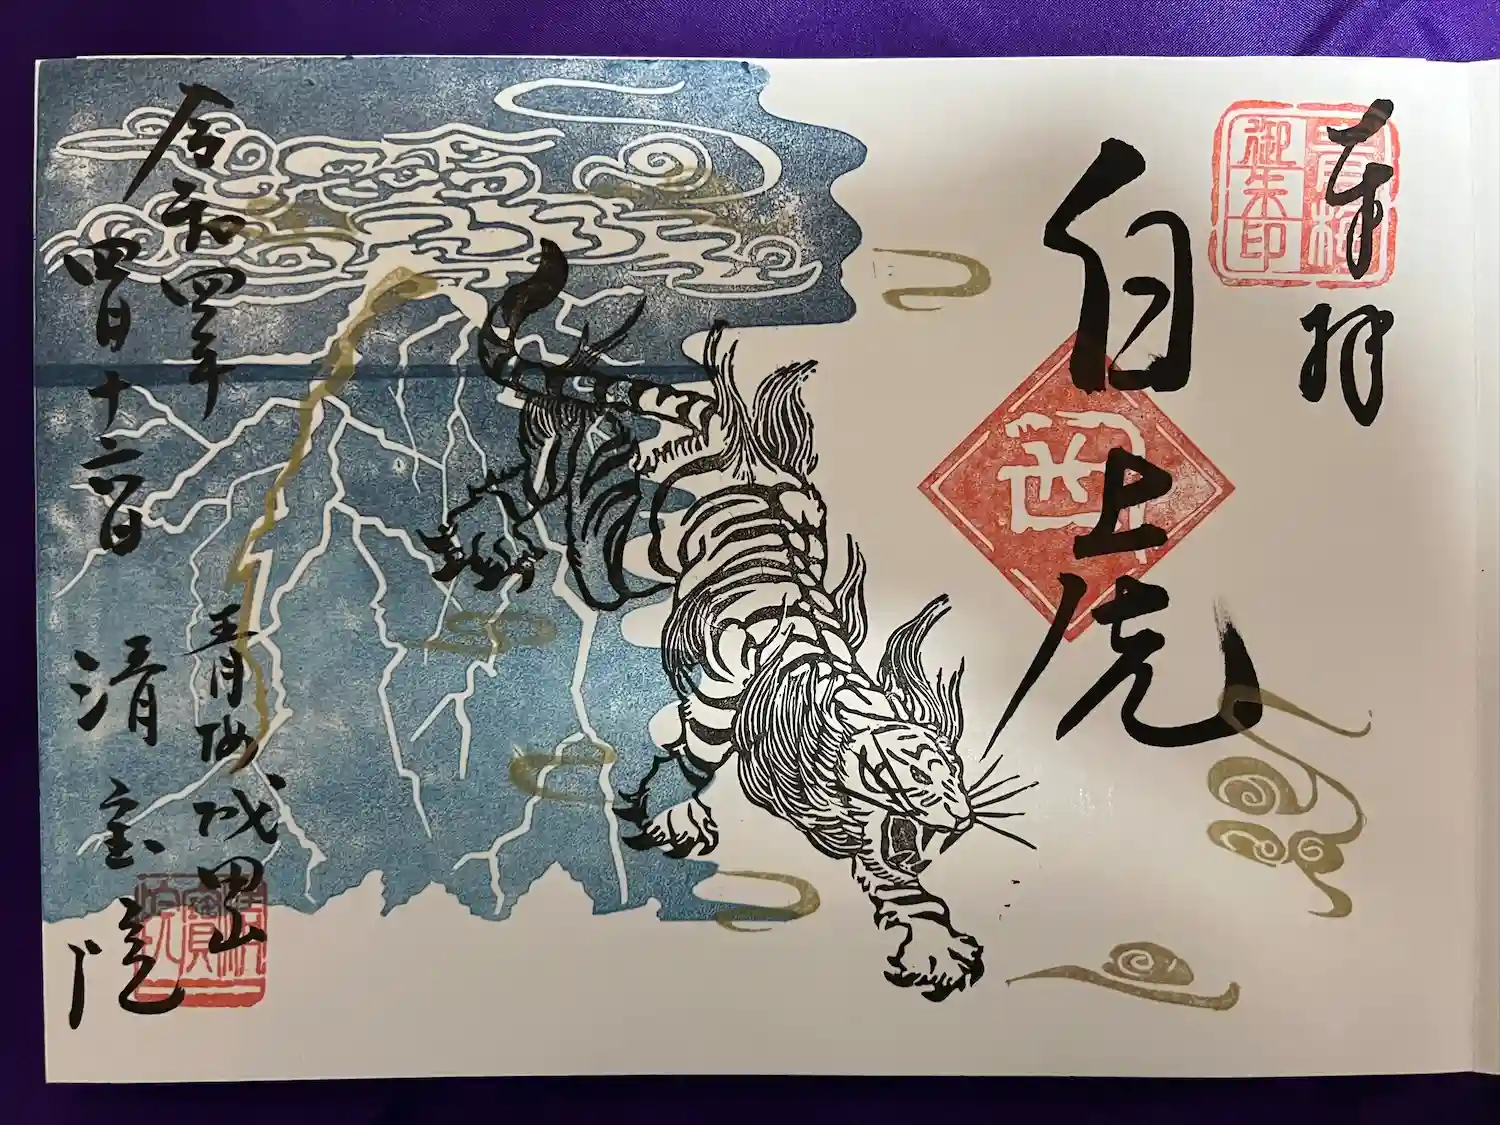 奉拝
青梅
御朱印
白虎
西
令和四年
四月十六日
青梅成田山
清宝院
清寳院